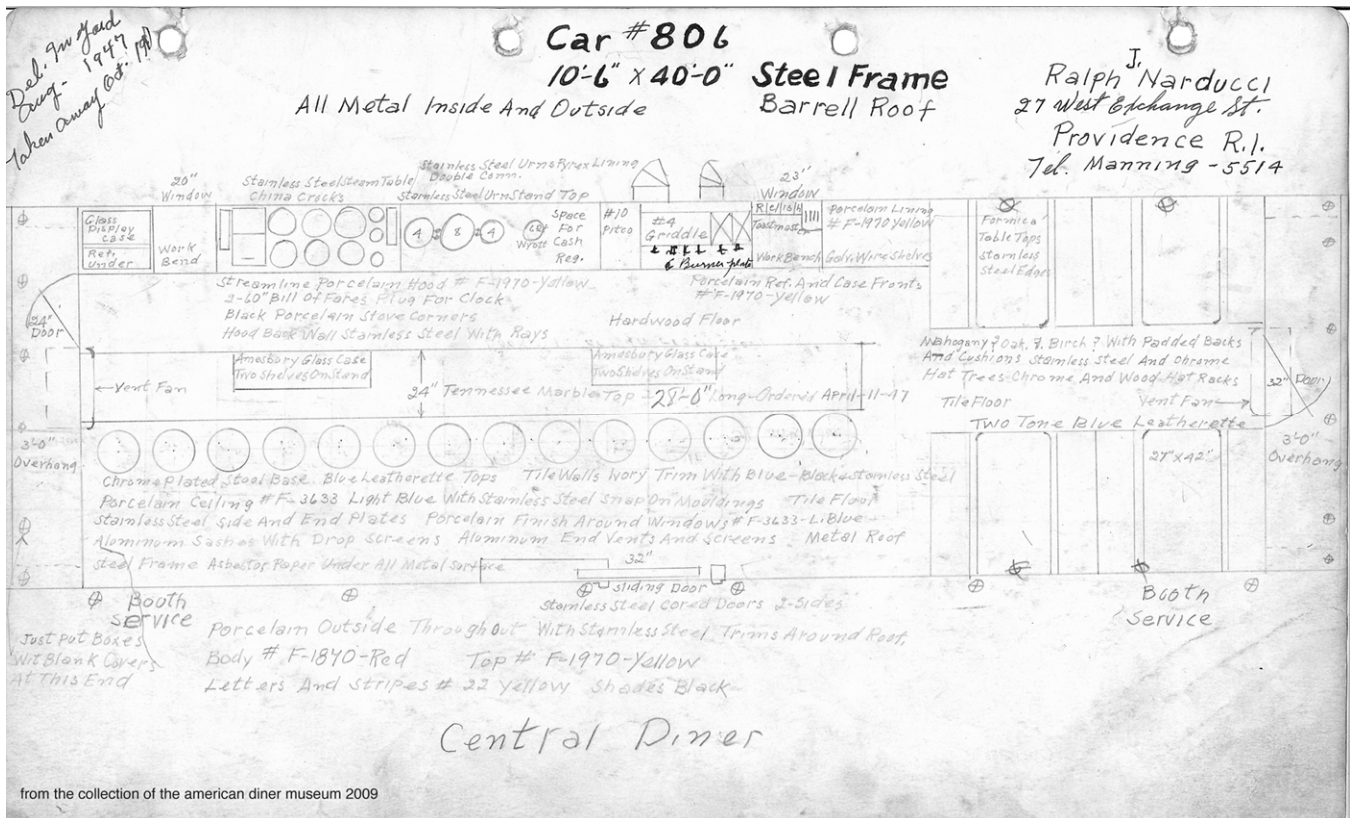 Del. In Yard
Aug- 1947
Taken away Oct.
Car #806
10'-6" x 40'-0" Steel Frame
All Metal Inside And Outside
Barrell Roof
Ralph J. Narducci
27 West Exchange St.
Providence R.I.
Tel. Manning - 5514
20"
Window
Stainless Steel Steam Table
China Crocks
Stainless Steel Urns Pyrex Lining
Double Comn.
Stainless Steel Urn Stand Top
23"
Window
Glass
Display
Case
Ref.
Under
Work
Bend
4
8
4
Wyott
Space
For
Cash
Reg.
#10
Pitco
#4
Griddle
6 Burner plate
Toastmaster
Work Bench
Porcelain Lining
# F-1970 Yellow
Galv. Wire Shelves
Formica
Table Tops
Stainless
Steel Edges
Streamline Porcelain Hood # F-1970-Yellow
2-60" Bill Of Fares Plug For Clock
Black Porcelain Stove Corners
Hood Back Wall Stainless Steel With Rays
Porcelain Ref. And Case Fronts
# F-1970-Yellow
Hardwood Floor
24"
Door
Amesbury Glass Case
Two Shelves On Stand
Amesbury Glass Case
Two Shelves On Stand
Vent Fan
24" Tennessee Marble Top - 28'-0" Long-Ordered April-11-47
Mahogany ? Oak ? Birch ? With Padded Backs
And Cushions Stainless Steel And Chrome
Hat Trees-Chrome And Wood Hat Racks
Tile Floor
Vent Fan
32" Door
Two Tone Blue Leatherette
3'-0"
Overhang
27"x42"
3'-0"
Overhang
Chrome Plated Stool Base Blue Leatherette Tops Tile Walls Ivory Trim With Blue-Black & Stainless Steel
Porcelain Ceiling # F-3633 Light Blue With Stainless Steel Snap On Mouldings Tile Floor
Stainless Steel Side And End Plates Porcelain Finish Around Windows # F-3633-Li Blue
Aluminum Sashes With Drop Screens Aluminum End Vents And Screens Metal Roof
Steel Frame Asbestos Paper Under All Metal Surface
32"
Sliding Door
Stainless Steel Cored Doors 2-Sides
Booth
Service
Booth
Service
Just Put Boxes
Wit Blank Covers
At This End
Porcelain Outside Throughout With Stainless Steel Trims Around Roof.
Body # F-1840-Red Top # F-1970-Yellow
Letters And Stripes # 22 Yellow Shades Black
Central Diner
from the collection of the american diner museum 2009